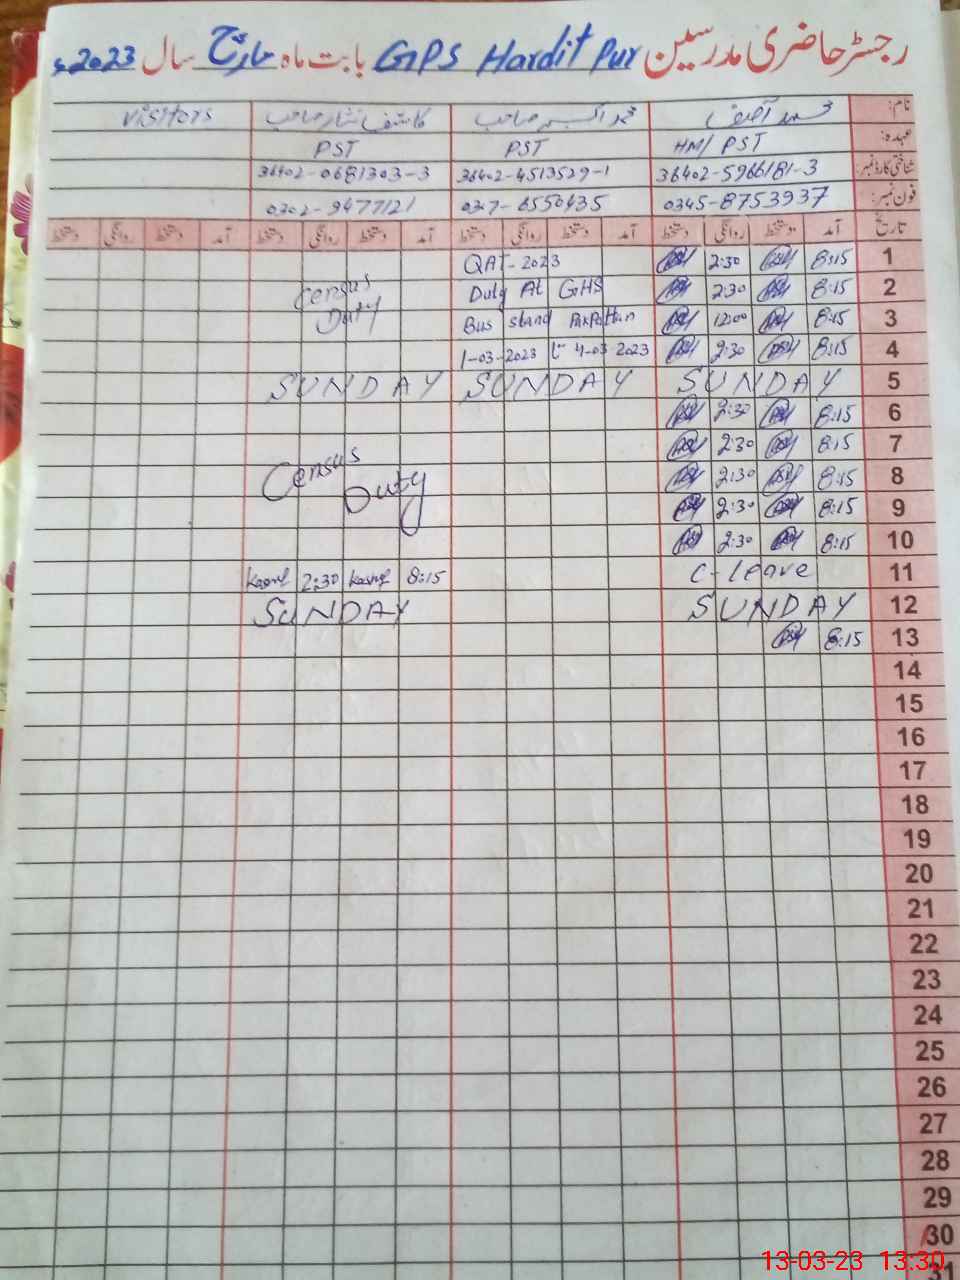 رجسٹر حاضری مدرسین GPS Hardit Pur بابت ماہ مارچ سال 2023ء
نام: محمد آصف محمد اکبر صاحب کاشف نثار صاحب Visitors
عہدہ: HM/PST PST PST
شناختی کارڈ نمبر: 36402-5966181-3 36402-4513529-1 36402-0681303-3
فون نمبر: 0345-8753937 0307-6550435 0302-9477121
تاریخ آمد دستخط روانگی دستخط آمد دستخط روانگی دستخط آمد دستخط روانگی دستخط آمد دستخط روانگی دستخط
1 8:15 2:30 QAT-2023
2 8:15 2:30 Duty At GHS Census
3 8:15 12:00 Bus stand PakPattan Duty
4 8:15 2:30 1-03-2023 تا 4-03-2023
5 SUNDAY SUNDAY SUNDAY
6 8:15 2:30
7 8:15 2:30
8 8:15 2:30 Census
9 8:15 2:30 Duty
10 8:15 2:30
11 C-leave 8:15 Kashif 2:30 Kashif
12 SUNDAY SUNDAY
13 8:15
14
15
16
17
18
19
20
21
22
23
24
25
26
27
28
29
30
31
13-03-23 13:30